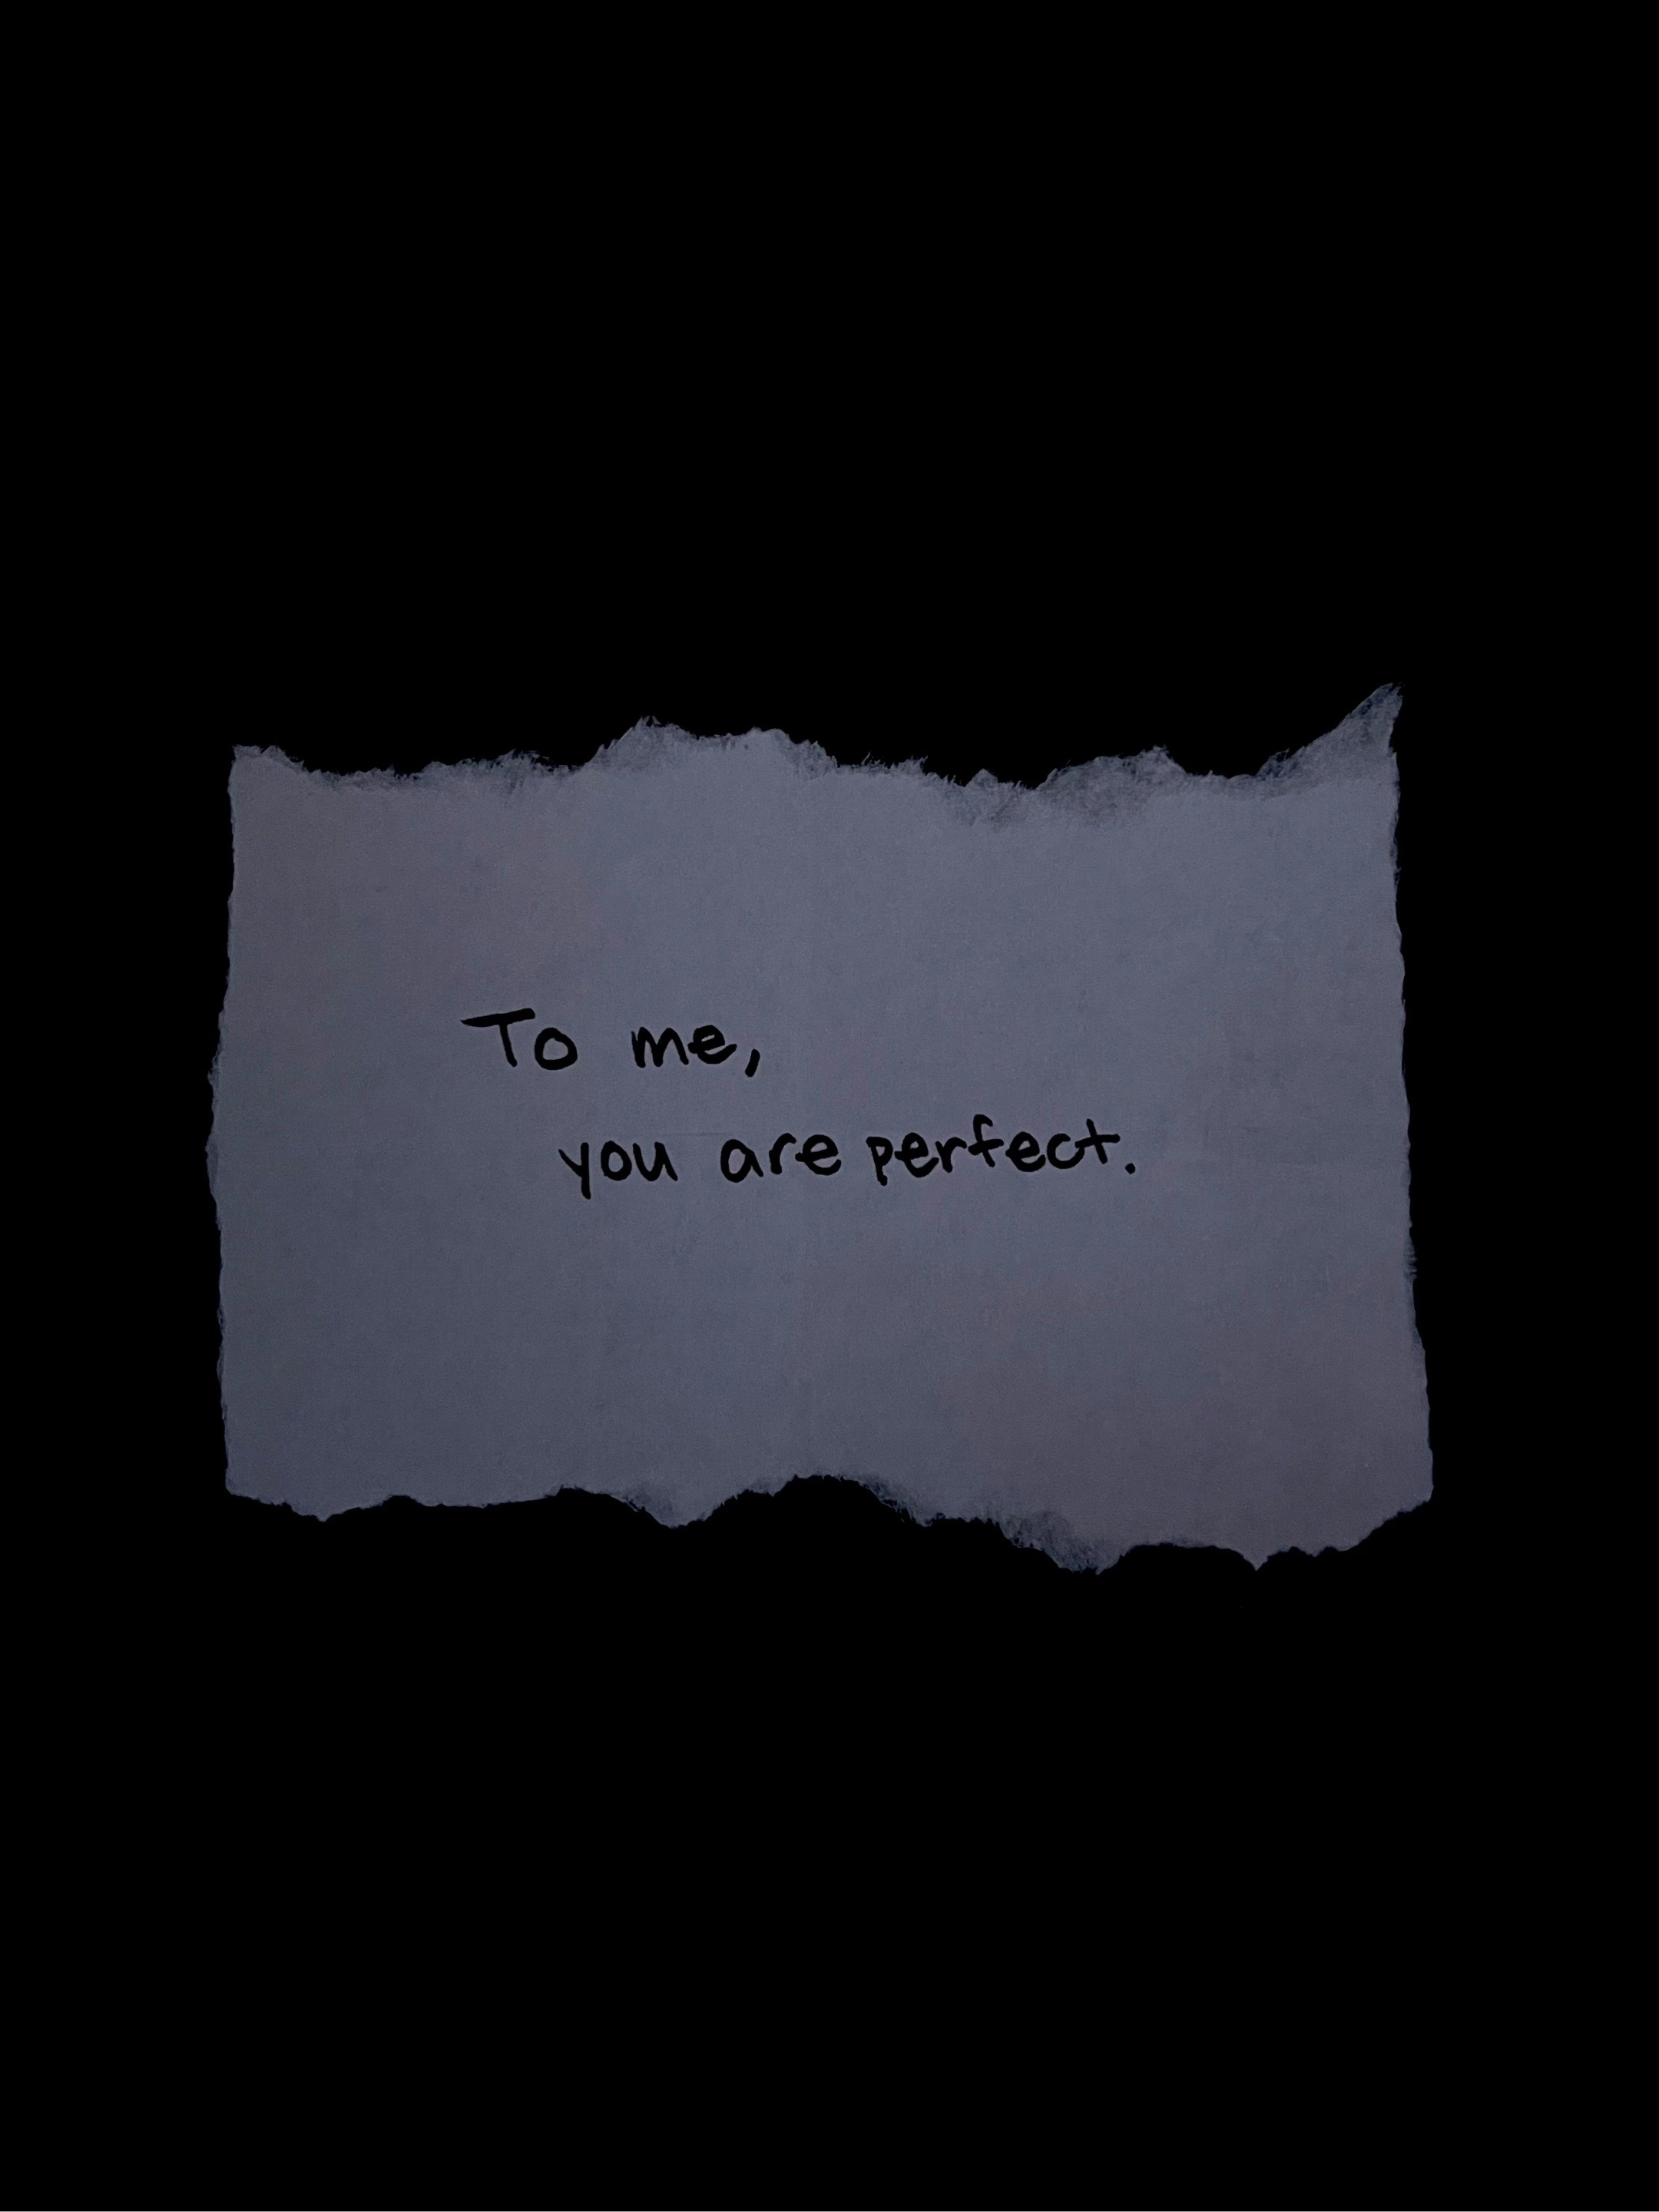 To me,
you are perfect.